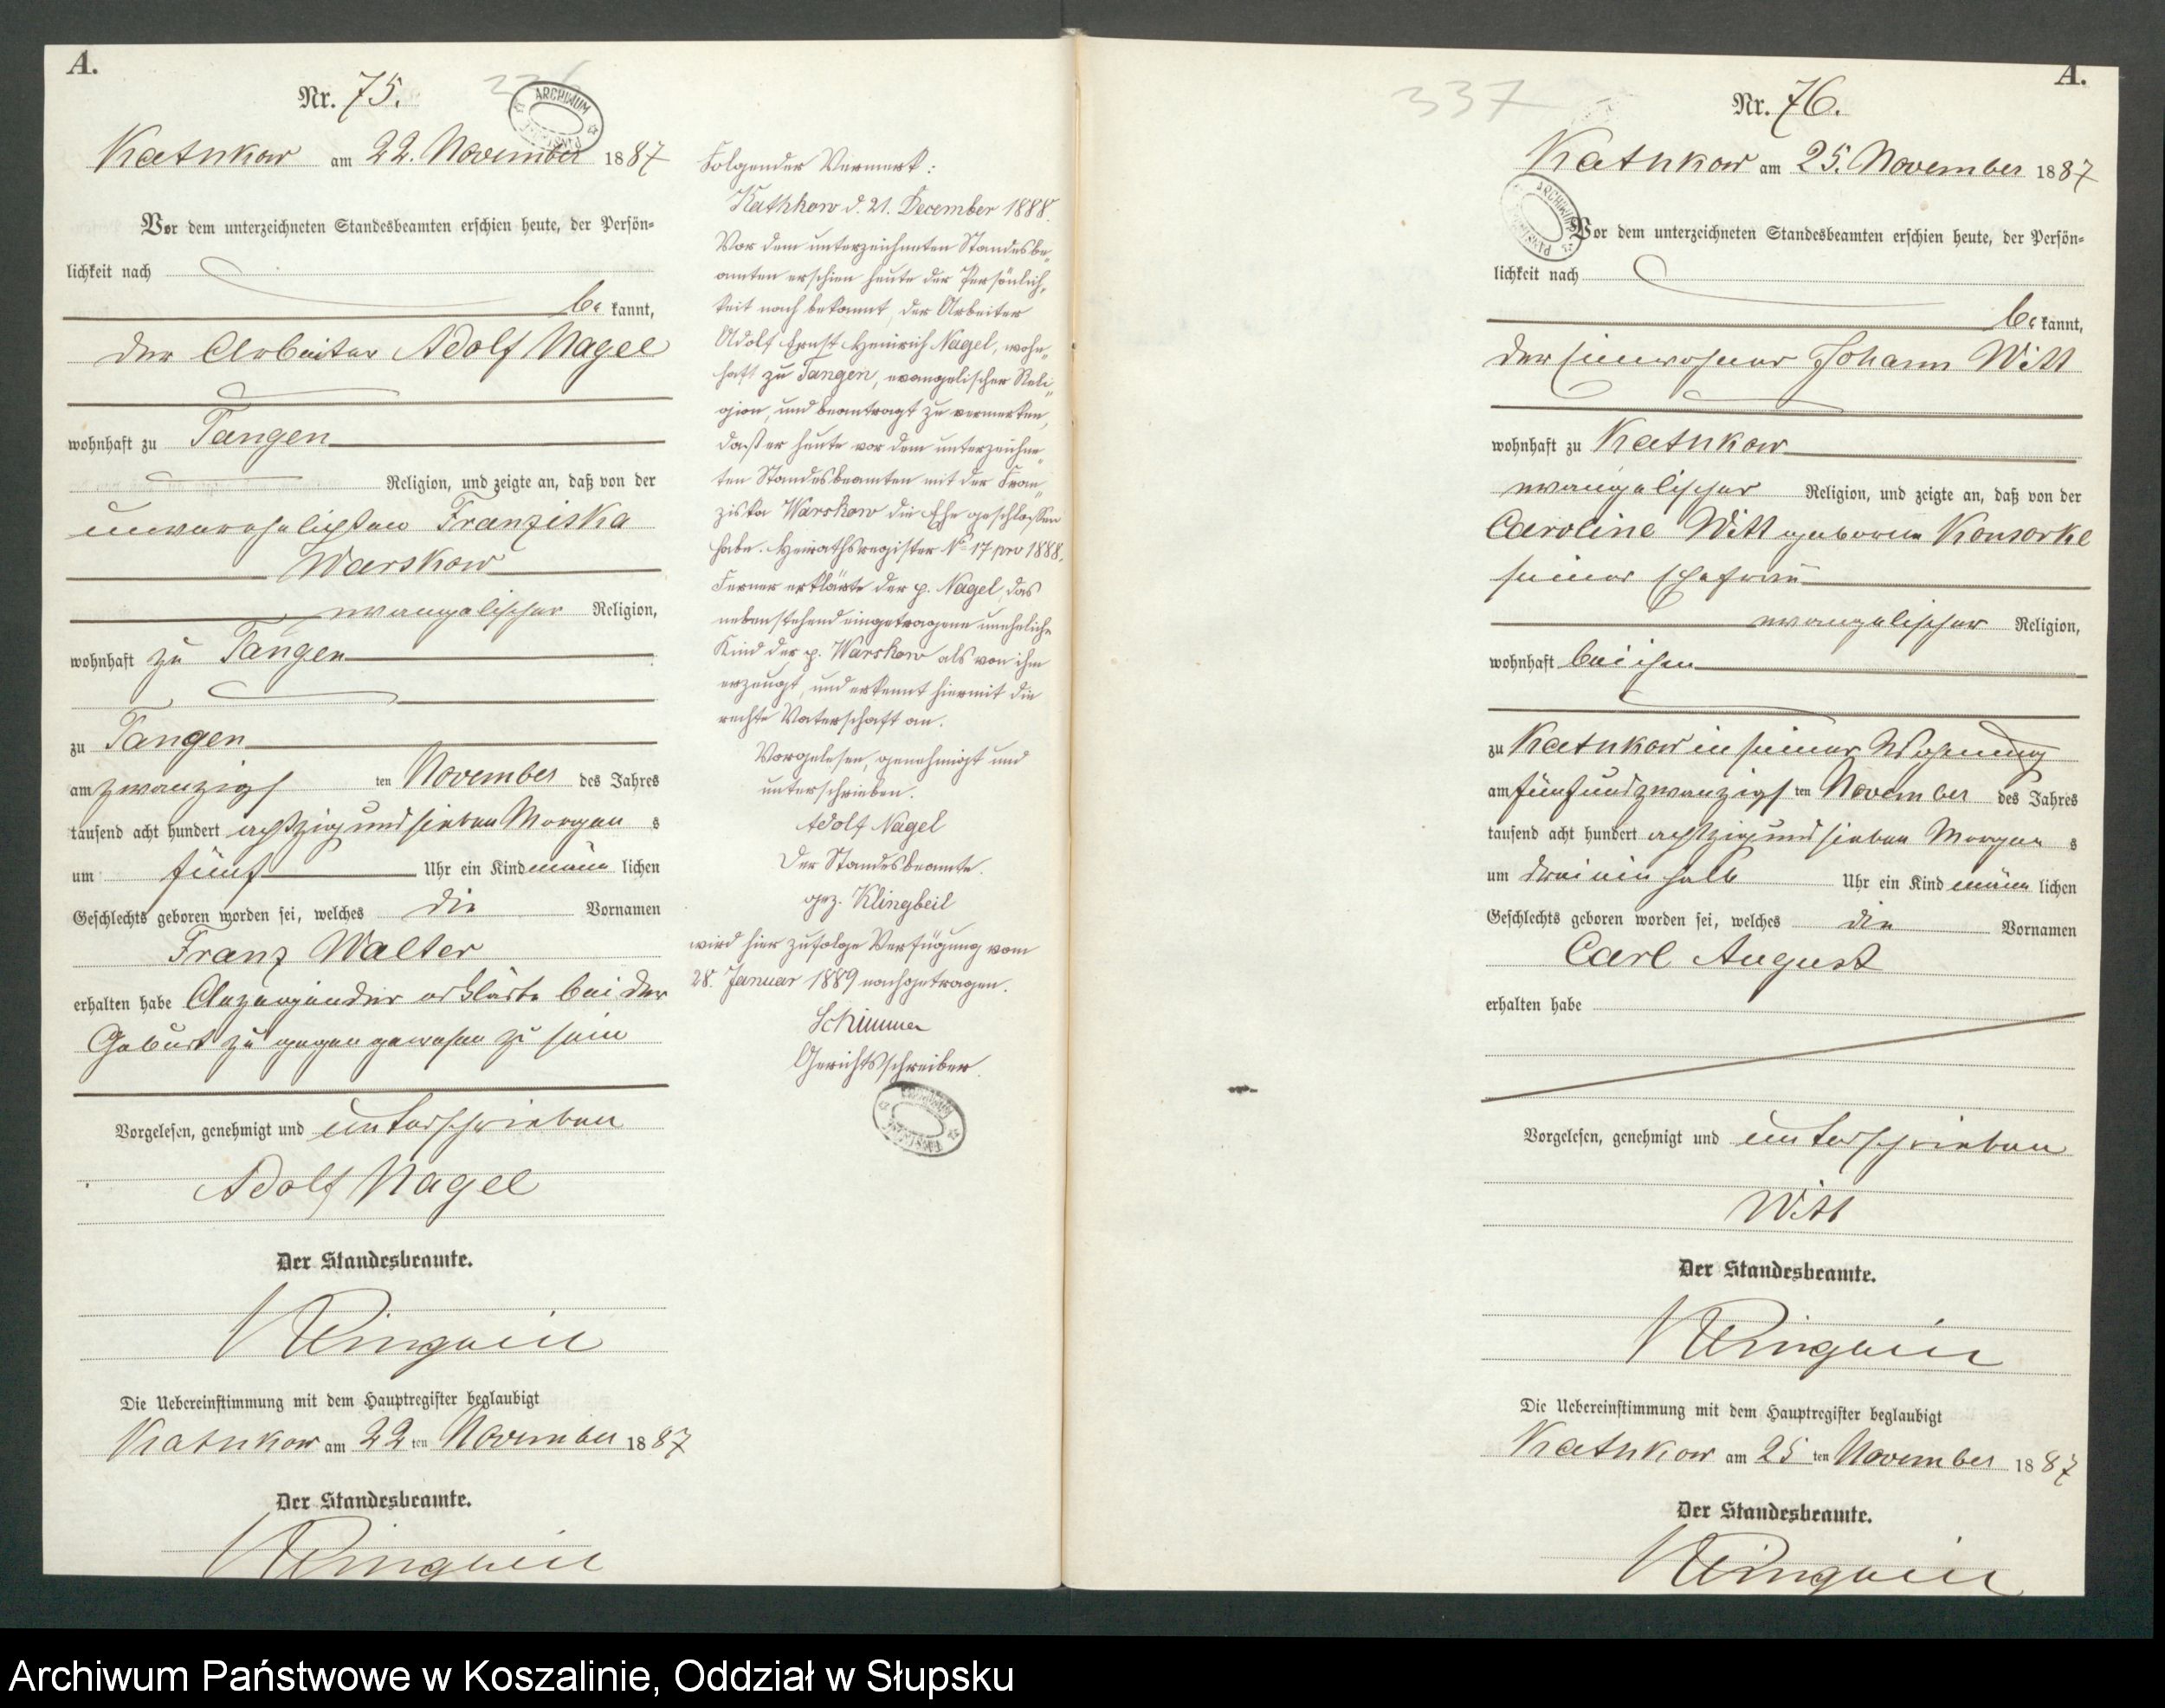 A.
Nr. 75.
Kathkow am 22. November 1887
Vor dem unterzeichneten Standesbeamten erschien heute, der Persön=
lichkeit nach
be kannt,
der Arbeiter Adolf Nagel
wohnhaft zu Tangen
Religion, und zeigte an, daß von der
unverehelichten Franziska
Warskow
evangelischer Religion,
wohnhaft zu Tangen
zu Tangen
am zwanzigs ten November des Jahres
tausend acht hundert achtzig und sieben Morgen s
um fünf Uhr ein Kind männ lichen
Geschlechts geboren worden sei, welches die Vornamen
Franz Walter
erhalten habe Anzeigender erklärte bei der
Geburt zugegen gewesen zu sein
Vorgelesen, genehmigt und unterschrieben
Adolf Nagel
Der Standesbeamte.
Klingbeil
Die Uebereinstimmung mit dem Hauptregister beglaubigt
Kathkow am 22 ten November 1887
Der Standesbeamte.
Klingbeil
ARCHIWUM
Folgender Vermerk:
Kathkow d. 21. December 1888.
Vor dem unterzeichneten Standesbe„
amten erschien heute der Persönlich„
keit nach bekannt, der Arbeiter
Adolf Ernst Heinrich Nagel, wohn„
haft zu Tangen, evangelischer Reli„
gion, und beantragt zu vermerken,
daß er heute vor dem unterzeichne„
ten Standesbeamten mit der Fran„
ziska Warskow die Ehe geschlossen
habe. Heirathsregister No 17 pro 1888.
Ferner erklärte der p. Nagel, das
nebenstehend eingetragene uneheliche
Kind der p. Warskow als von ihm
erzeugt, und erkennt hiermit die
rechte Vaterschaft an.
Vorgelesen, genehmigt und
unterschrieben.
Adolf Nagel
Der Standesbeamte.
gez. Klingbeil
wird hier zufolge Verfügung vom
28. Januar 1889 nachgetragen.
Schimmer
Gerichtsschreiber.
337
A.
Nr. 76.
Kathkow am 25. November 1887
Vor dem unterzeichneten Standesbeamten erschien heute, der Persön=
lichkeit nach
be kannt,
der Einwohner Johann Witt
wohnhaft zu Kathkow
evangelischer Religion, und zeigte an, daß von der
Caroline Witt geborene Konsorke
seiner Ehefrau
evangelischer Religion,
wohnhaft bei ihm
zu Kathkow in seiner Wohnung
am fünfundzwanzigs ten November des Jahres
tausend acht hundert achtzig und sieben Morgen s
um drei ein halb Uhr ein Kind männ lichen
Geschlechts geboren worden sei, welches die Vornamen
Carl August
erhalten habe
Vorgelesen, genehmigt und unterschrieben
Witt
Der Standesbeamte.
Klingbeil
Die Uebereinstimmung mit dem Hauptregister beglaubigt
Kathkow am 25 ten November 1887
Der Standesbeamte.
Klingbeil
Archiwum Państwowe w Koszalinie, Oddział w Słupsku